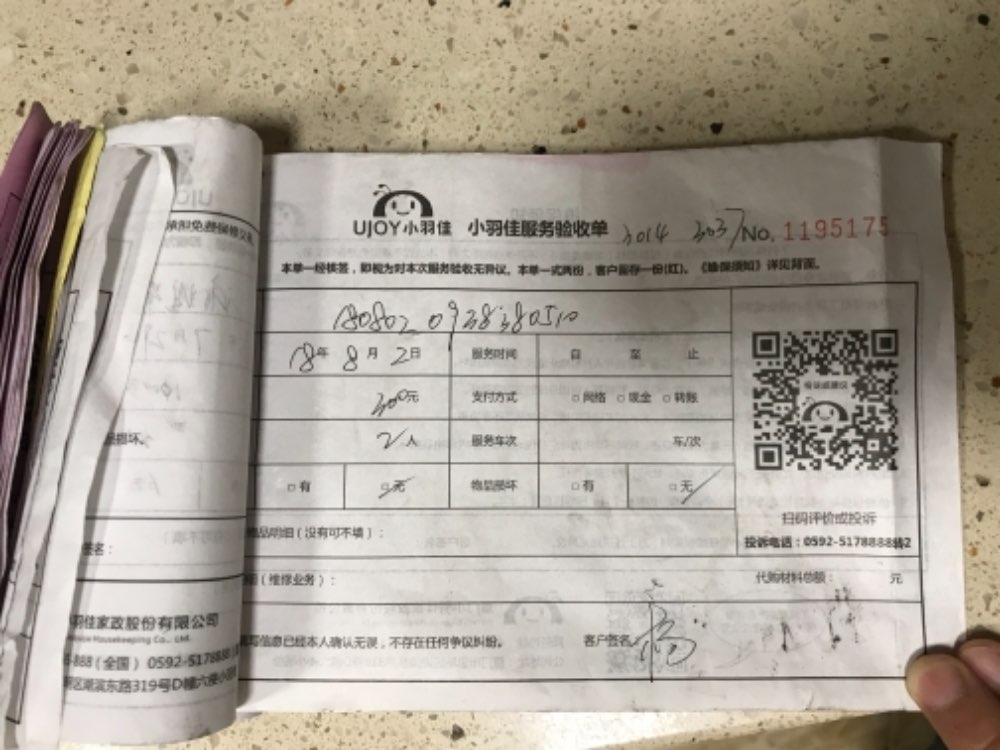 UJOY小羽佳 小羽佳服务验收单 3014 3037 No. 1195175
本单一经核签，即视为对本次服务验收无异议。本单一式两份，客户留存一份(红)。《维保须知》详见背面。
1808020938380510
18年 8月 2日 服务时间 自 至 止
300元 支付方式 □网络 □现金 □转账
2人 服务车次 车/次
□有 □无 物品损坏 □有 □无
投诉或建议
扫码评价或投诉
投诉电话：0592-5178888转2
物品明细（没有可不填）：
（维修业务）： 代购材料总额： 元
写信息已经本人确认无误，不存在任何争议纠纷。 客户签名
承担免费保修义务
损坏.
签名：
羽佳家政股份有限公司
Housekeeping Co., Ltd.
8-888（全国） 0592-5178888
区湖滨东路319号D幢六楼